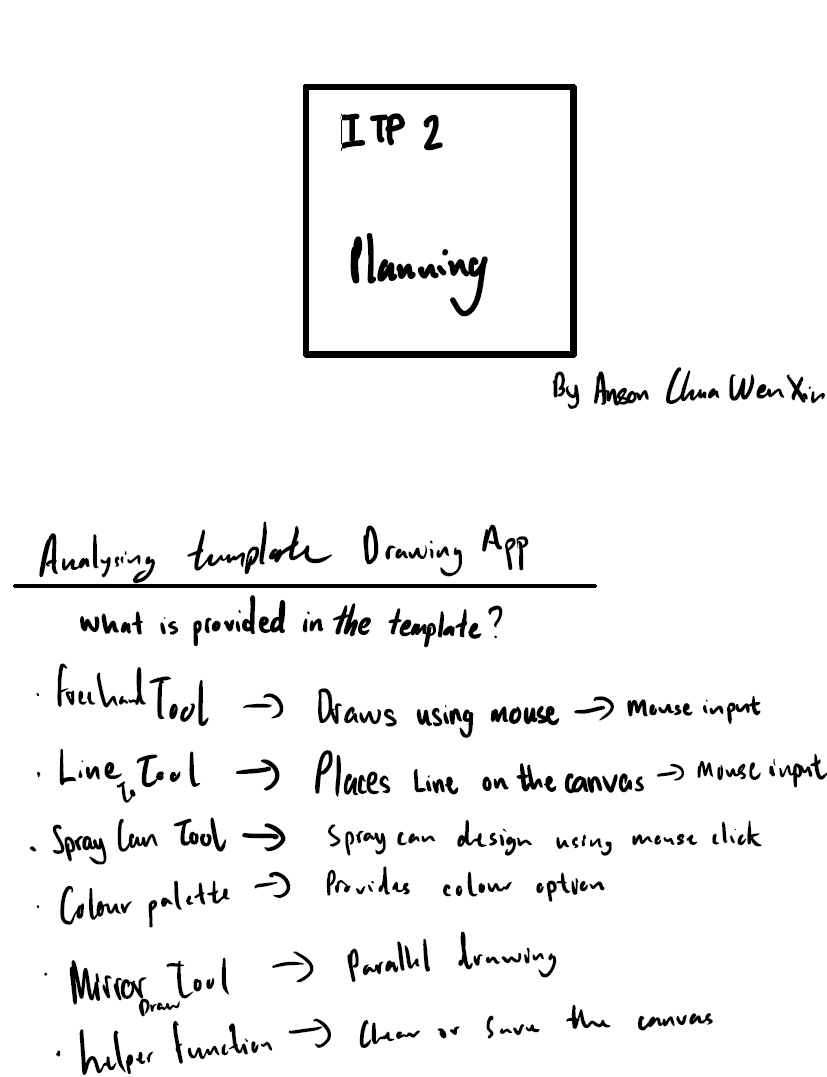 ITP 2
Planning
By Anson Chua Wen Xin
Analysing template Drawing App
What is provided in the template?
· Freehand Tool → Draws using mouse → Mouse input
· Line To Tool → Places Line on the canvas → Mouse input
· Spray Can Tool → Spray can design using mouse click
· Colour palette → Provides colour option
· Mirror Draw Tool → Parallel drawing
· helper function → Clear or Save the canvas